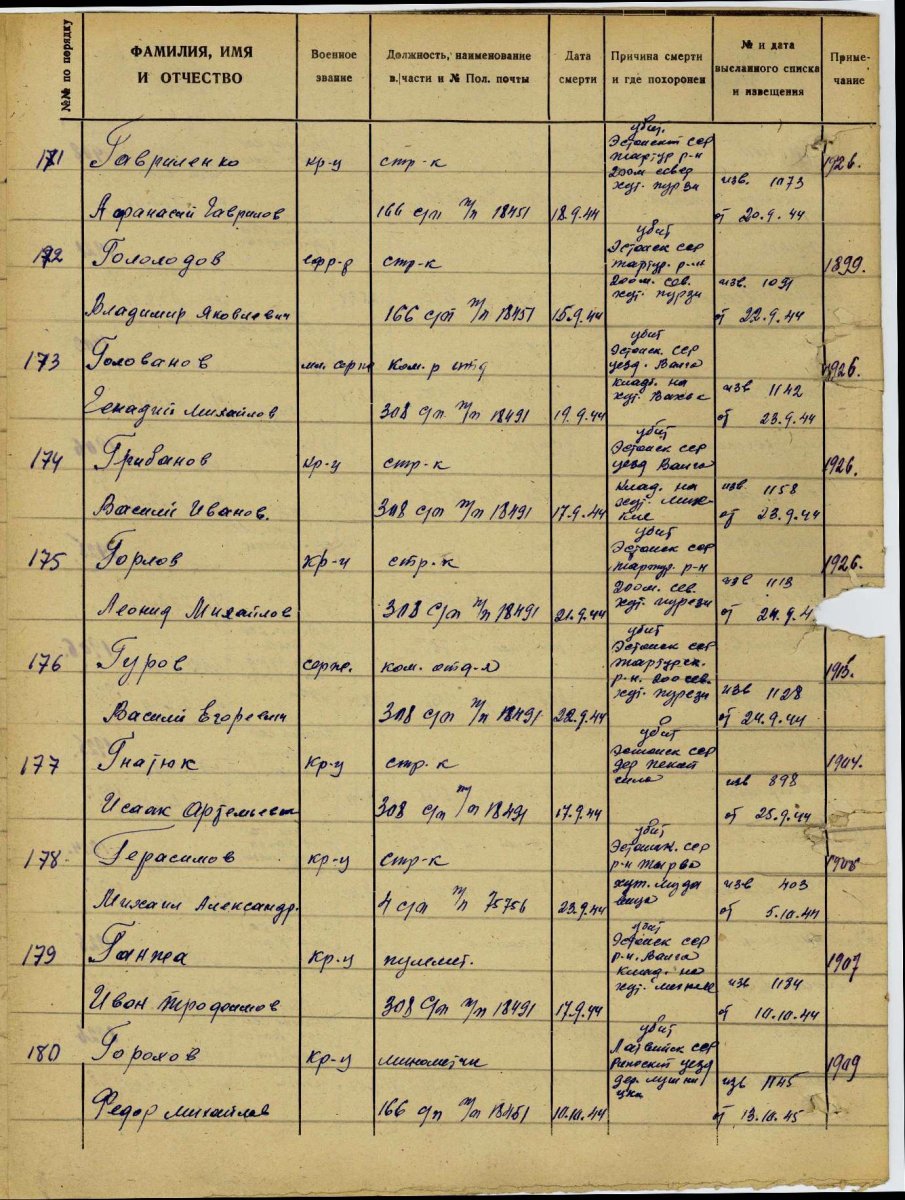 №№ по порядку
ФАМИЛИЯ, ИМЯ
И ОТЧЕСТВО
Военное
звание
Должность, наименование
в/части и № Пол. почты
Дата
смерти
Причина смерти
и где похоронен
№ и дата
высланного списка
и извещения
Приме-
чание
171 Гавриленко кр-ц стр-к убит. Эстонск ССР 1926.
Афанасий Гаврилов 166 сп п/п 18451 18.9.44 изв. 1073 от 20.9.44
172 Гололодов ефр-р стр-к убит Эстонск ССР 1899.
Владимир Яковлевич 166 сп п/п 18451 15.9.44 изв. 1091 от 22.9.44
173 Голованов мл. серж ком-р отд убит Эстонск. ССР уезд. Валга 1926.
Генадий Михайлов 308 сп п/п 18491 19.9.44 кладб. на хут. изв 1142 от 23.9.44
174 Грибанов кр-ц стр-к убит Эстонск ССР уезд Валга 1926.
Василий Иванов. 308 сп п/п 18491 17.9.44 клад. на хут. изв. 1158 от 23.9.44
175 Горлов кр-ц стр-к убит Эстонск ССР 1926.
Леонид Михайлов 308 сп п/п 18491 21.9.44 200м. сев. хут. изв 1113 от 24.9.4
176 Гуров серж. ком. отд-я убит Эстонск ССР
Василий Егоревич 308 сп п/п 18491 22.9.44 р-н. 200 сев. хут. изв 1128 от 24.9.44
177 Гнатюк кр-ц стр-к убит Эстонск ССР дер 1904.
Исаак Артемьевич 308 сп п/п 18491 17.9.44 изв 898 от 25.9.44
178 Герасимов кр-ц стр-к убит Эстонск. ССР р-н 1908
Михаил Александр. 4 сп п/п 75756 23.9.44 хут. изв 403 от 5.10.44
179 Ганжа кр-ц пулемет. убит Эстонск ССР р-н. Валга 1907
Иван Трофимов 308 сп п/п 18491 17.9.44 клад. на хут. изв 1134 от 10.10.44
180 Горохов кр-ц минометчи убит Латвийск ССР уезд 1909
Федор Михайлов 166 сп п/п 18451 10.10.44 дер. изв 1145 от 13.10.45